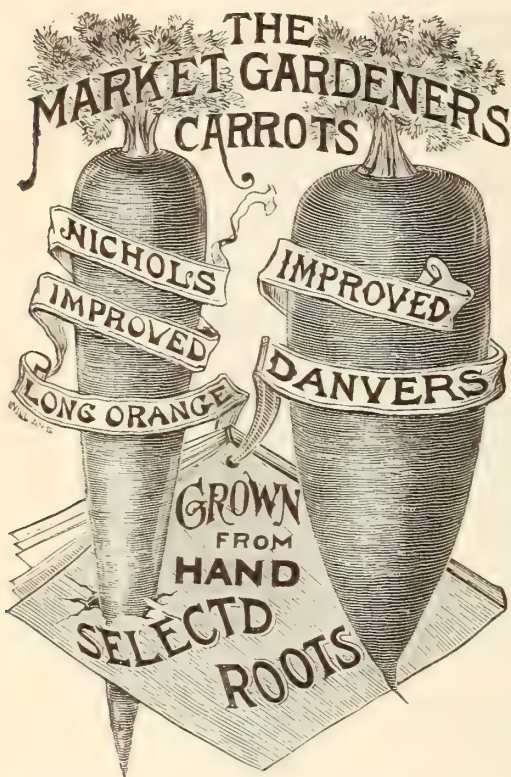 THE
MARKET GARDENERS
CARROTS
NICHOLS
IMPROVED
LONG ORANGE
IMPROVED
DANVERS
GROWN
FROM
HAND
SELECTD
ROOTS